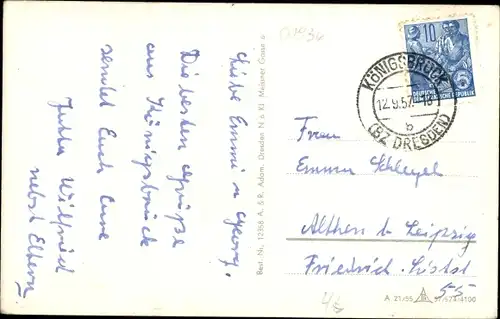 Liebe Emmi u Georg,
Die besten Grüße
aus Königsbrück
sendet Euch Eure
Jutta Wilfried
nebst Eltern
Best.-Nr. 12358 A. & R. Adam, Dresden N 6 Kl. Meißner Gasse 6
10
DEUTSCHE
DEMOKRATISCHE REPUBLIK
KÖNIGSBRÜCK
12.9.57
b
(BZ DRESDEN)
Frau
Emma Schlegel
Althen b Leipzig
Friedrich-Listst
55
A 21/55